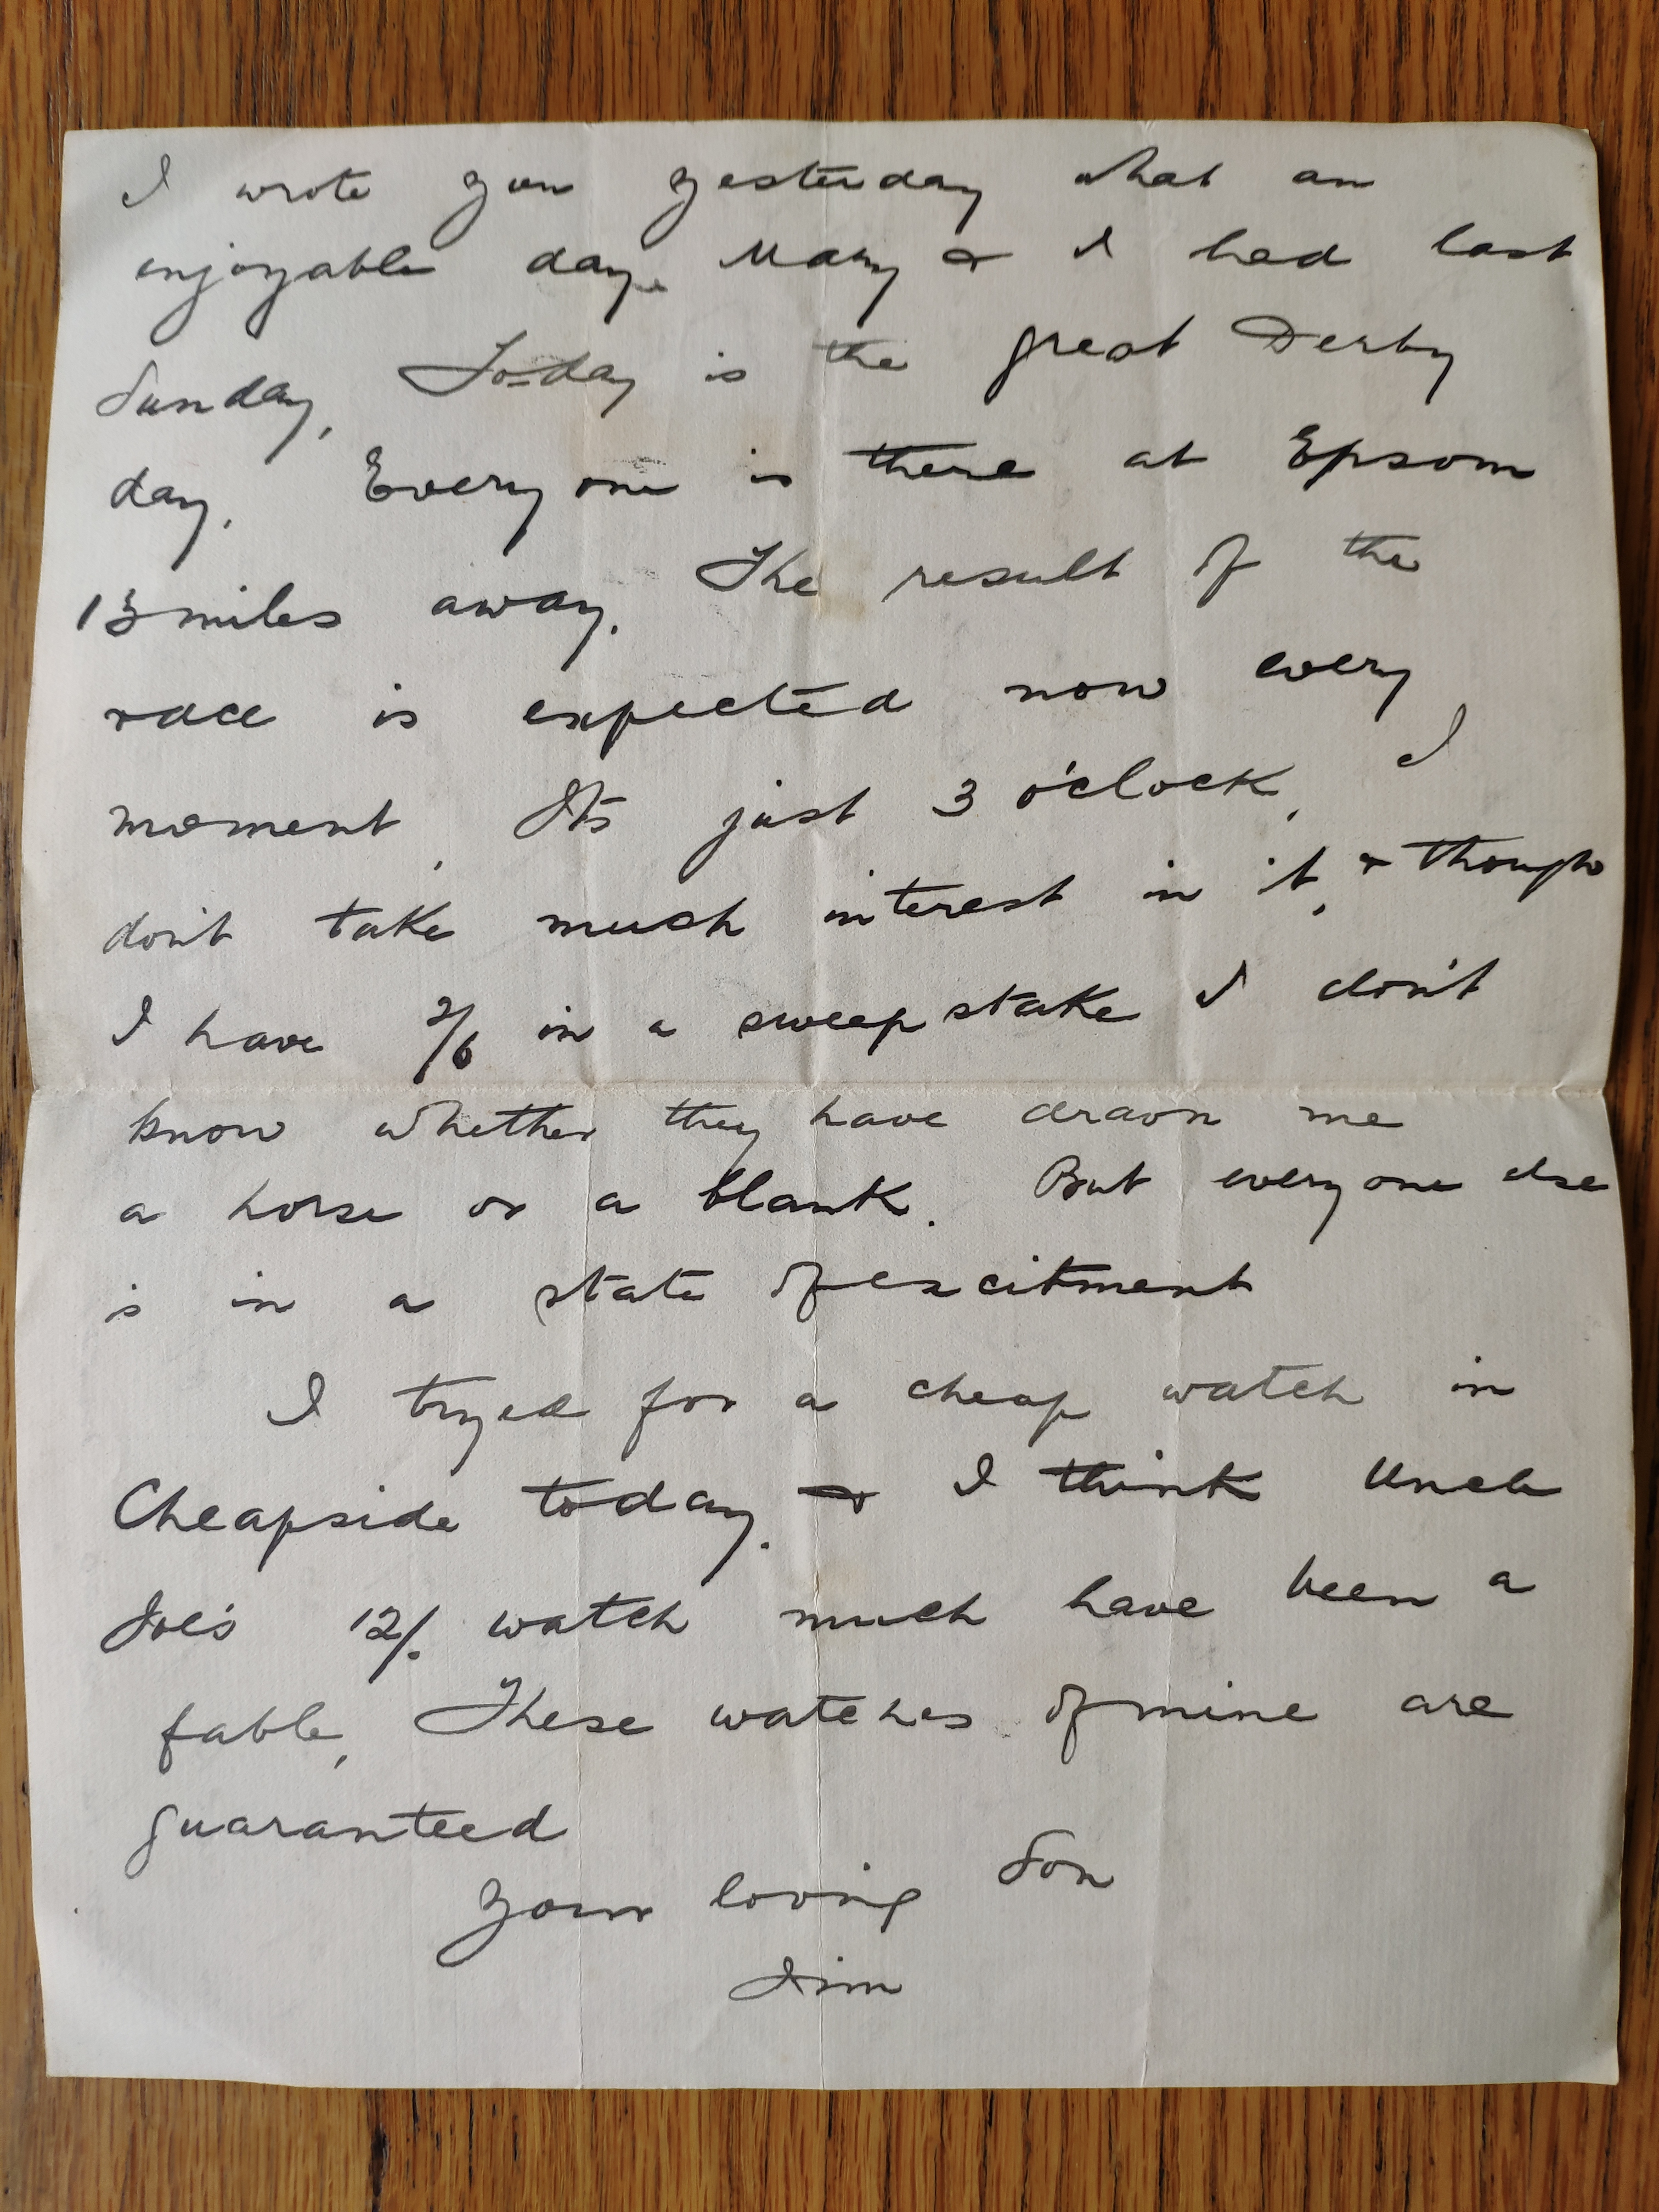 I wrote you yesterday what an
enjoyable day Mary & I had last
Sunday. To-day is the great Derby
day. Everyone is there at Epsom
13 miles away. The result of the
race is expected now every
moment. Its just 3 o'clock. I
don't take much interest in it, & though
I have 2/6 in a sweepstake I don't
know whether they have drawn me
a horse or a blank. But everyone else
is in a state of excitment
I tryed for a cheap watch in
Cheapside today. & I think Uncle
Joe's 12/. watch much have been a
fable, These watches of mine are
guaranteed
Your loving Son
Jim